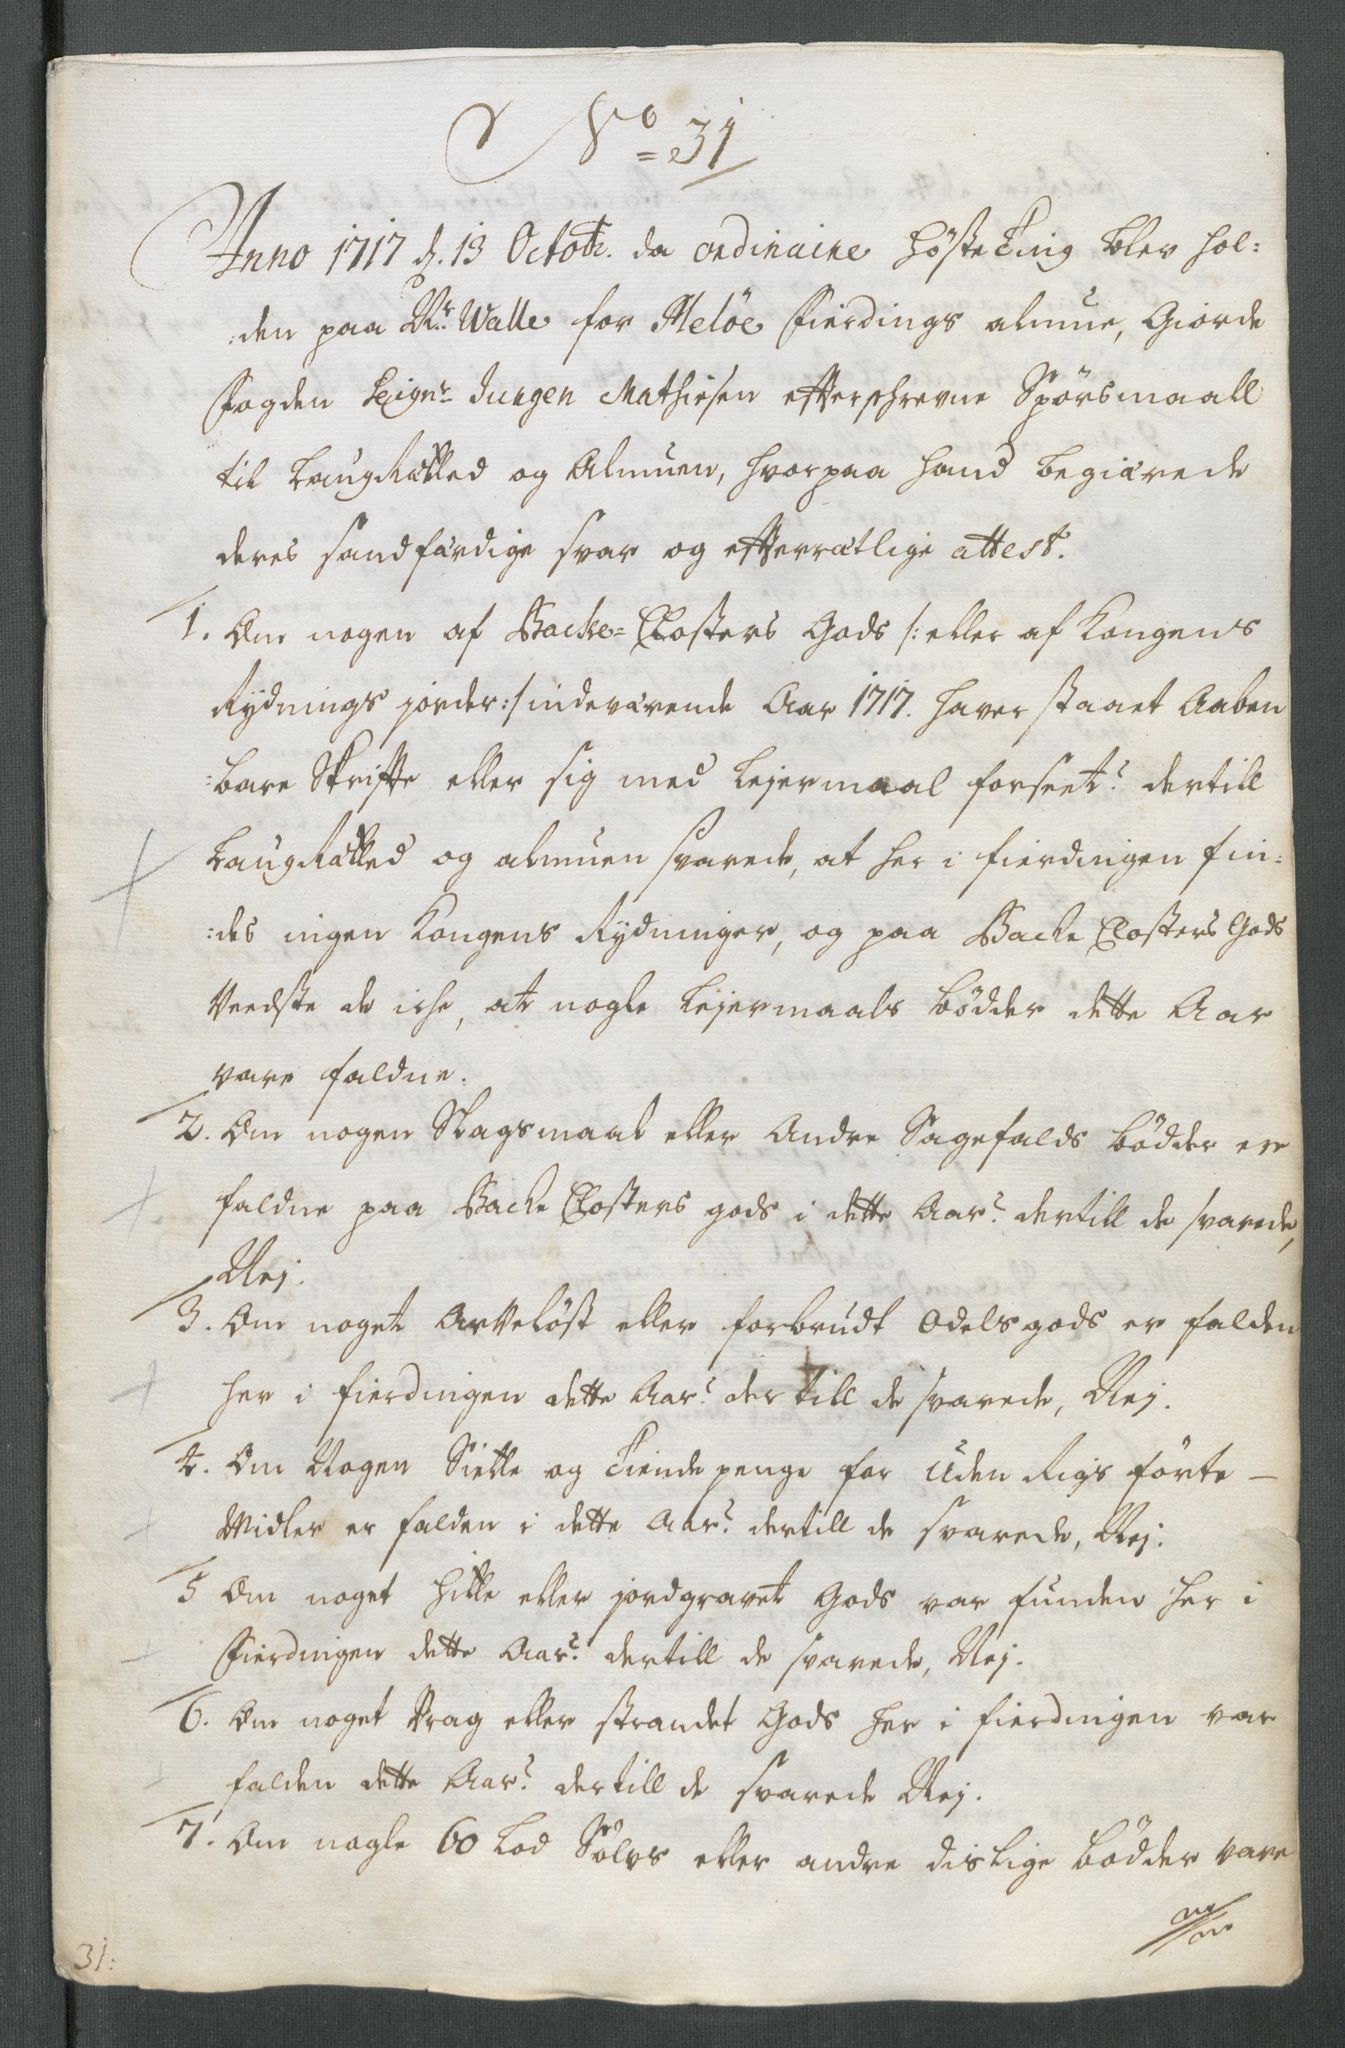 No 31
Anno 1717 d. 13 Octobr. da ordinaire HøsteTing blev hol:
:den paa Walle for Meløe Fierdings almue, Giorde
Fogden Seignr. Jurgen Mathiesen effterschrevne Spørsmaall
til LaugRætted og Almuen, hvorpaa hand begiærede
deres sandfærdige svar og effterrætlige attest.
1. Om nogen af Backe=Closters Gods /: eller af Kongens
Rydnings jorder :/ indeværende Aar 1717. haver staaet Aaben
:bare Skrifte eller sig med Lejermaal forseet? dertill
LaugRætted og almuen svarede, at her i fierdingen fin:
:des ingen Kongens Rydninger, og paa Backe Closters Gods
Veedste de iche, at nogle Lejermaals bødder dette Aar
vare faldne.
2. Om nogen Slagsmaal eller Andre Sagefalds bødder ere
faldne paa Backe Closters gods i dette Aar? dertill de svarede,
Nej.
3. Om noget Arveløst eller forbrudt Odelsgods er falden
her i fierdingen dette Aar? der till de svarede, Nej.
4. Om Nogen Siette og Tiende penge for Uden Rigs førte
Midler er falden i dette Aar? dertill de svarede, Nej.
5 Om noget hitte eller jordgravet Gods var funden her i
Fierdingen dette Aar? dertill de svarede, Nej.
6. Om noget Vrag eller strandet Gods her i fierdingen var
falden dette Aar? dertill de svarede Nej.
7. Om nogle 60 Lod Sølvs eller andre dislige bødder vare
31: